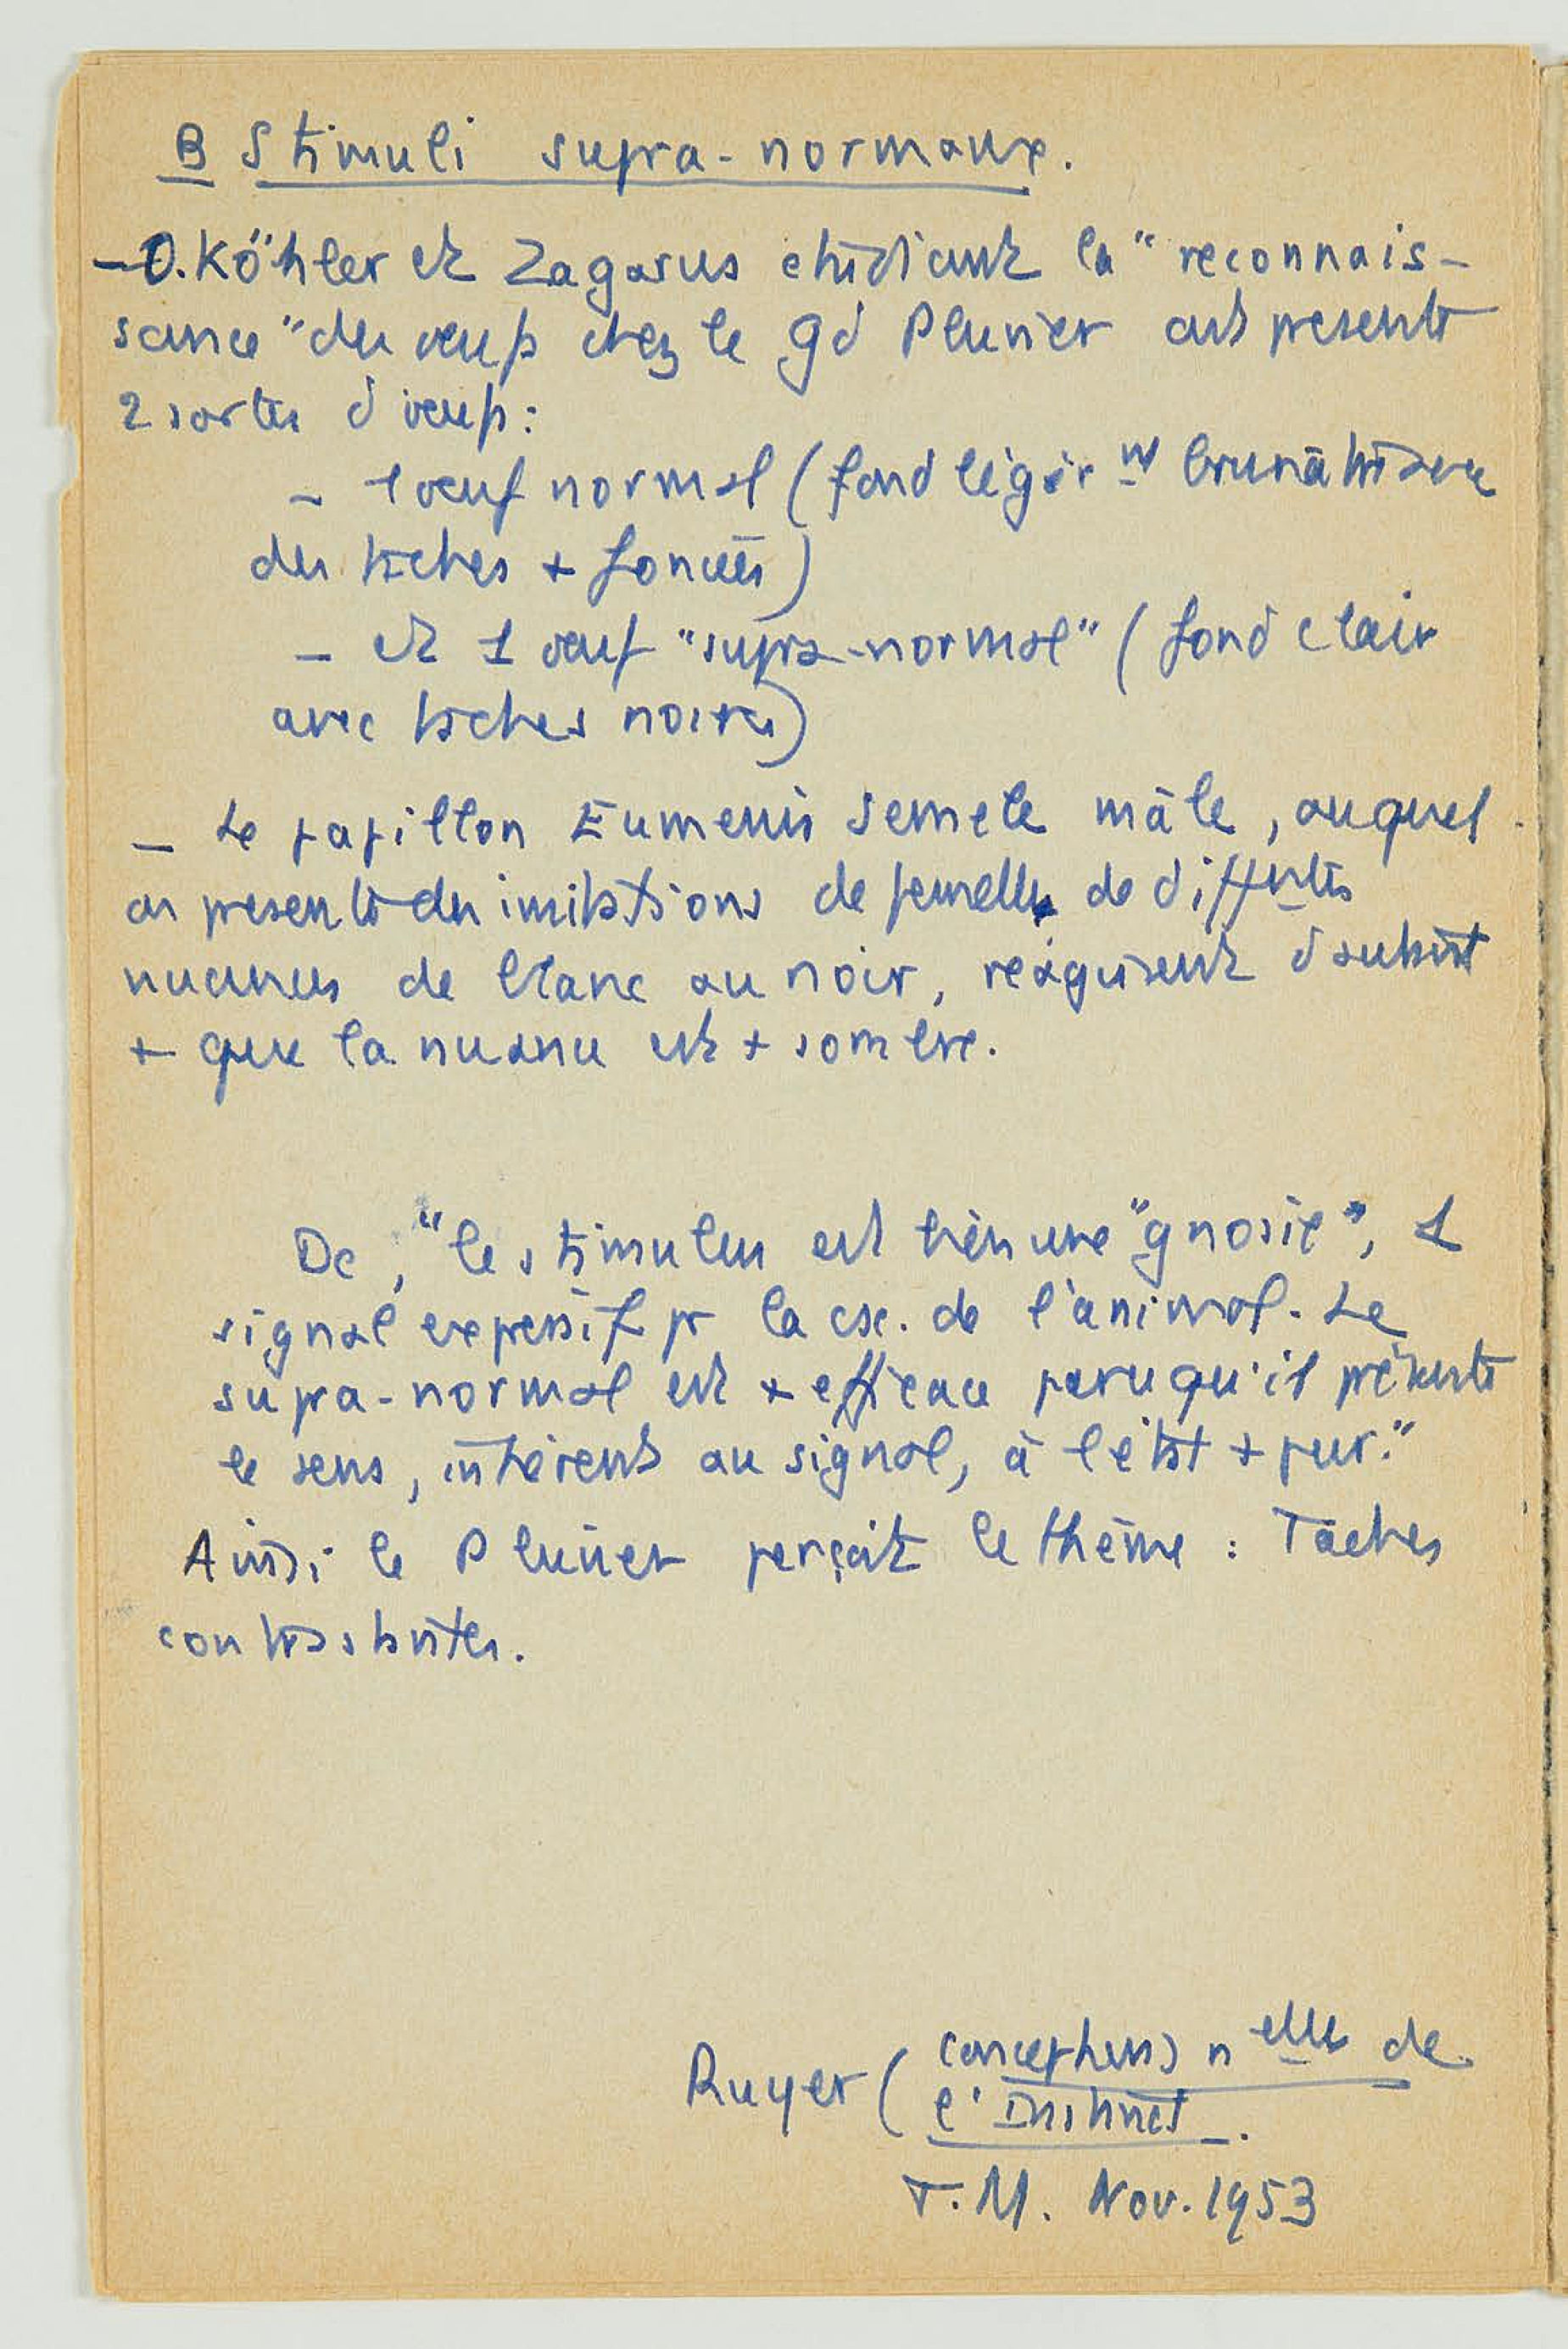 B Stimuli supra-normaux.
- O. Köhler et Zagarus étudiant la "reconnais-
sance" des œufs chez le gd Pluvier ont présenté
2 sortes d'œufs :
- 1 œuf normal (fond légèr nt brunâtre avec
des taches + foncées)
- et 1 œuf "supra-normal" (fond clair
avec taches noires)
- Le papillon Eumenis Semele mâle, auquel
on présente des imitations de femelles de difftes
nuances de blanc au noir, réagissent d'autant
+ que la nuance est + sombre.
Dc, "le stimulus est bien une "gnosie", 1
signal expressif pr la csc. de l'animal. Le
supra-normal est + efficace parce qu'il présente
le sens, inhérent au signal, à l'état + pur."
Ainsi le Pluvier perçoit le thème : Taches
contrastantes.
Ruyer (conceptions nelles de
l'Instinct.
T.M. Nov. 1953